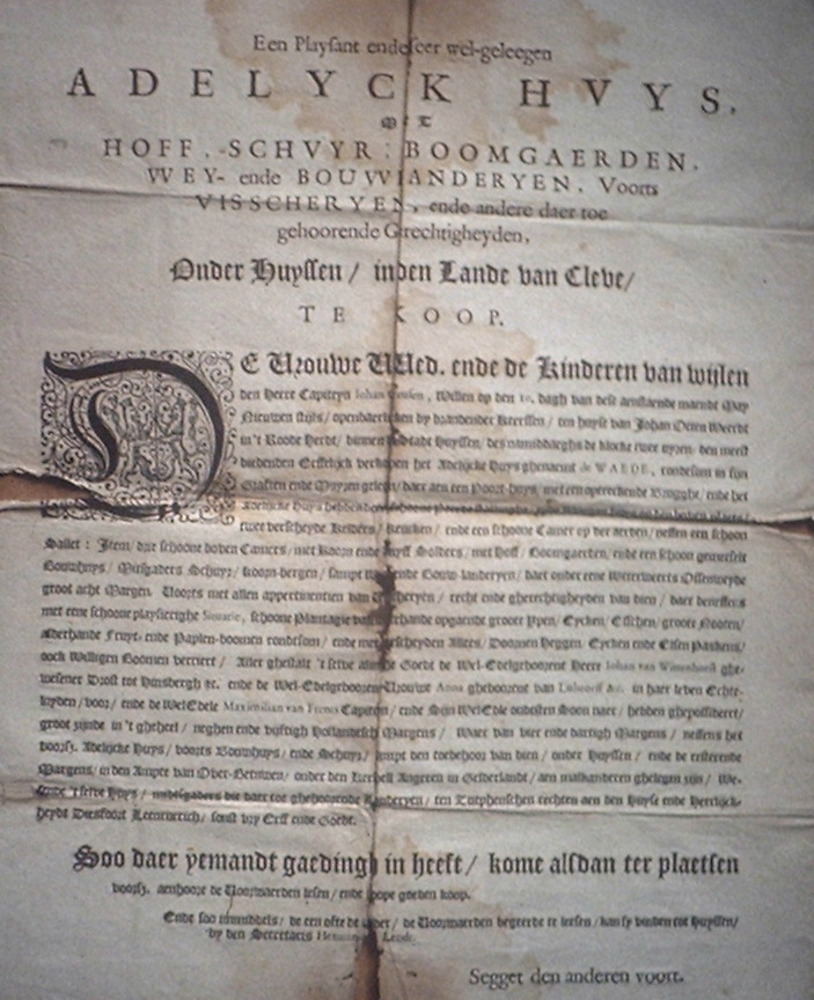 Een Playsant ende seer wel-geleegen
ADELYCK HVYS.
MET
HOFF, SCHVYR: BOOMGAERDEN,
WEY- ende BOUWLANDERYEN, Voorts
VISSCHERYEN, ende andere daer toe
gehoorende Gerechtigheyden,
Onder Huyssen / inden Lande van Cleve /
TE KOOP.
DE Vrouwe Wed. ende de Kinderen van wijlen
den Heere Capiteyn Johan, willen op den 10. dagh van dese aenstaende maendt May
Nieuwen stijls / openbaerlicken by brandender keerssen / ten huyse van Johan Deren Weerdt
in 't Roode Herdt / binnen Huyssen / des namiddaeghs de klocke twee uyren / den meest
biedenden Erffelijck verkopen het Adelijcke Huys ghenaemt de WAERDE, rondtsom in sijn
Graften ende gelegen / daer aen een Poort-huys / met een opereckende Brugghe / ende het
Adelijcke Huys hebbende
twee verscheyde Kelders / Keucken / ende een schoone Camer op der aerden / neffen een schoon
Sallet: Item / drie schoone boven Camers / met Koorn ende Solders / met Hoff / Boomgaerten / ende een schoon
Bouwhuys / Schuyr / Koorn-bergen / sampt ende Bouw-landeryen / daer onder eene Ossenweyde
groot acht Margen. Voorts met allen appertinentien van / recht ende gherechtigheyden van dien / daer beneffens
met eene schoone playsierighe Situatie, schoone Plantagie van opgaende grooter Ypen / Eycken / Esschen / grooter Nooten /
allerhande Fruyt- ende Paplen-boomen rondtsom / ende met verscheyden Allees / Doornen Heggen / Eycken ende Elsen
oock Willigen Boomen verciert / Aller ghestalt 't selve Goedt de Wel-Edelgeboorene Heere Johan van ghe-
wesener Drost tot Hinsbergh etc. ende de Wel-Edelgeboorene Vrouwe Anna gheboorene van in haer leven Echte-
luyden / voor / ende de WelEdele Maximilian van Capiteyn / ende Sijn WelEdle oudtsten Soon naer / hebben ghepossideert /
groot zijnde in 't gheheel / neghen ende vijftigh Hollandtsch Margens / Waer van vier ende dartigh Margens / neffens het
voorsz. Adelijcke Huys / voorts Bouwhuys / ende Schuyr / sampt den toebehoor van dien / onder Huyssen / ende de resterende
Margens / in den Ampte van Over-Betuwen / onder den Kerspell Angeren in Gelderlandt / aen malkanderen ghelegen sijn / We-
sende 't selve Huys / mitsgaders die daer toe ghehoorende Landeryen / ten Zutphenschen rechten aen den Huyse ende Heerlijck-
heydt Diesfoort Leenroerich / sonst vry Erff ende Goedt.
Soo daer yemandt gaedingh in heeft / kome alsdan ter plaetsen
voorsz. aenhoore de Voorwaerden lesen / ende hope goeden koop.
Ende soo inmiddels / de een ofte de ander / de Voorwaerden begeerde te leesen / kan sy vinden tot Huyssen /
by den Secretaris
Segget den anderen voort.